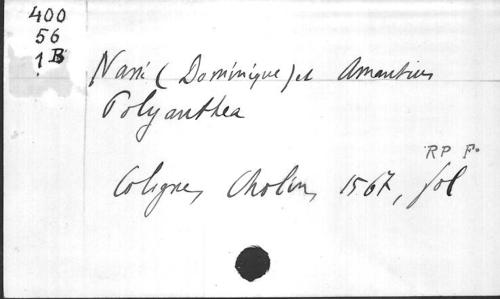 400
56
1 B
Nani (Dominique) et Amantius
Polyanthea
RP F.
Cologne, Cholin, 1567, fol